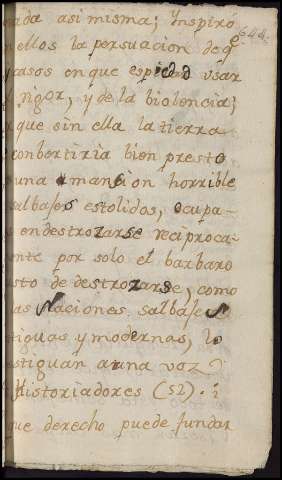 ada asi misma; Inspiró
644.
n ellos la persuacion de qᵉ
casos en que es piedad vsar
l rigor, y de la biolencia;
que sin ella la tierra
conbertiria bien presto
una mansion horrible
salbajes estolidos, ocupa-
s en destrozarse reciproca-
nte por solo el barbaro
sto de destrozarse, como
as Naciones salbajes
tiguas y modernas, lo
stiguan a una voz
s Historiadores (52). i
que derecho puede fundar